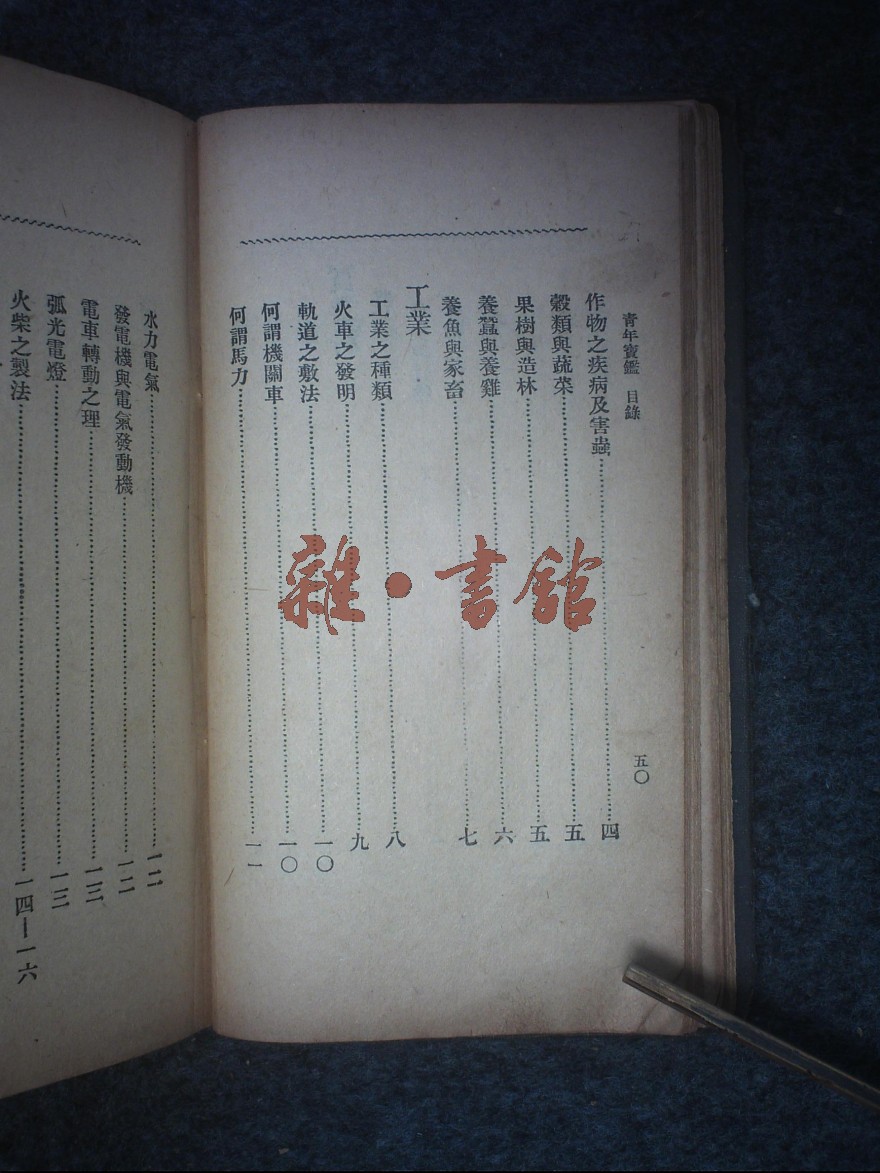 青年寶鑑 目錄 五〇
作物之疾病及害蟲……四
穀類與蔬菜……五
果樹與造林……五
養蠶與養雞……六
養魚與家畜……七
工業
工業之種類……八
火車之發明……九
軌道之敷法……一〇
何謂機關車……一〇
何謂馬力……一一
水力電氣……一二
發電機與電氣發動機……一二
電車轉動之理……一三
弧光電燈……一三
火柴之製法……一四—一六
雜·書館